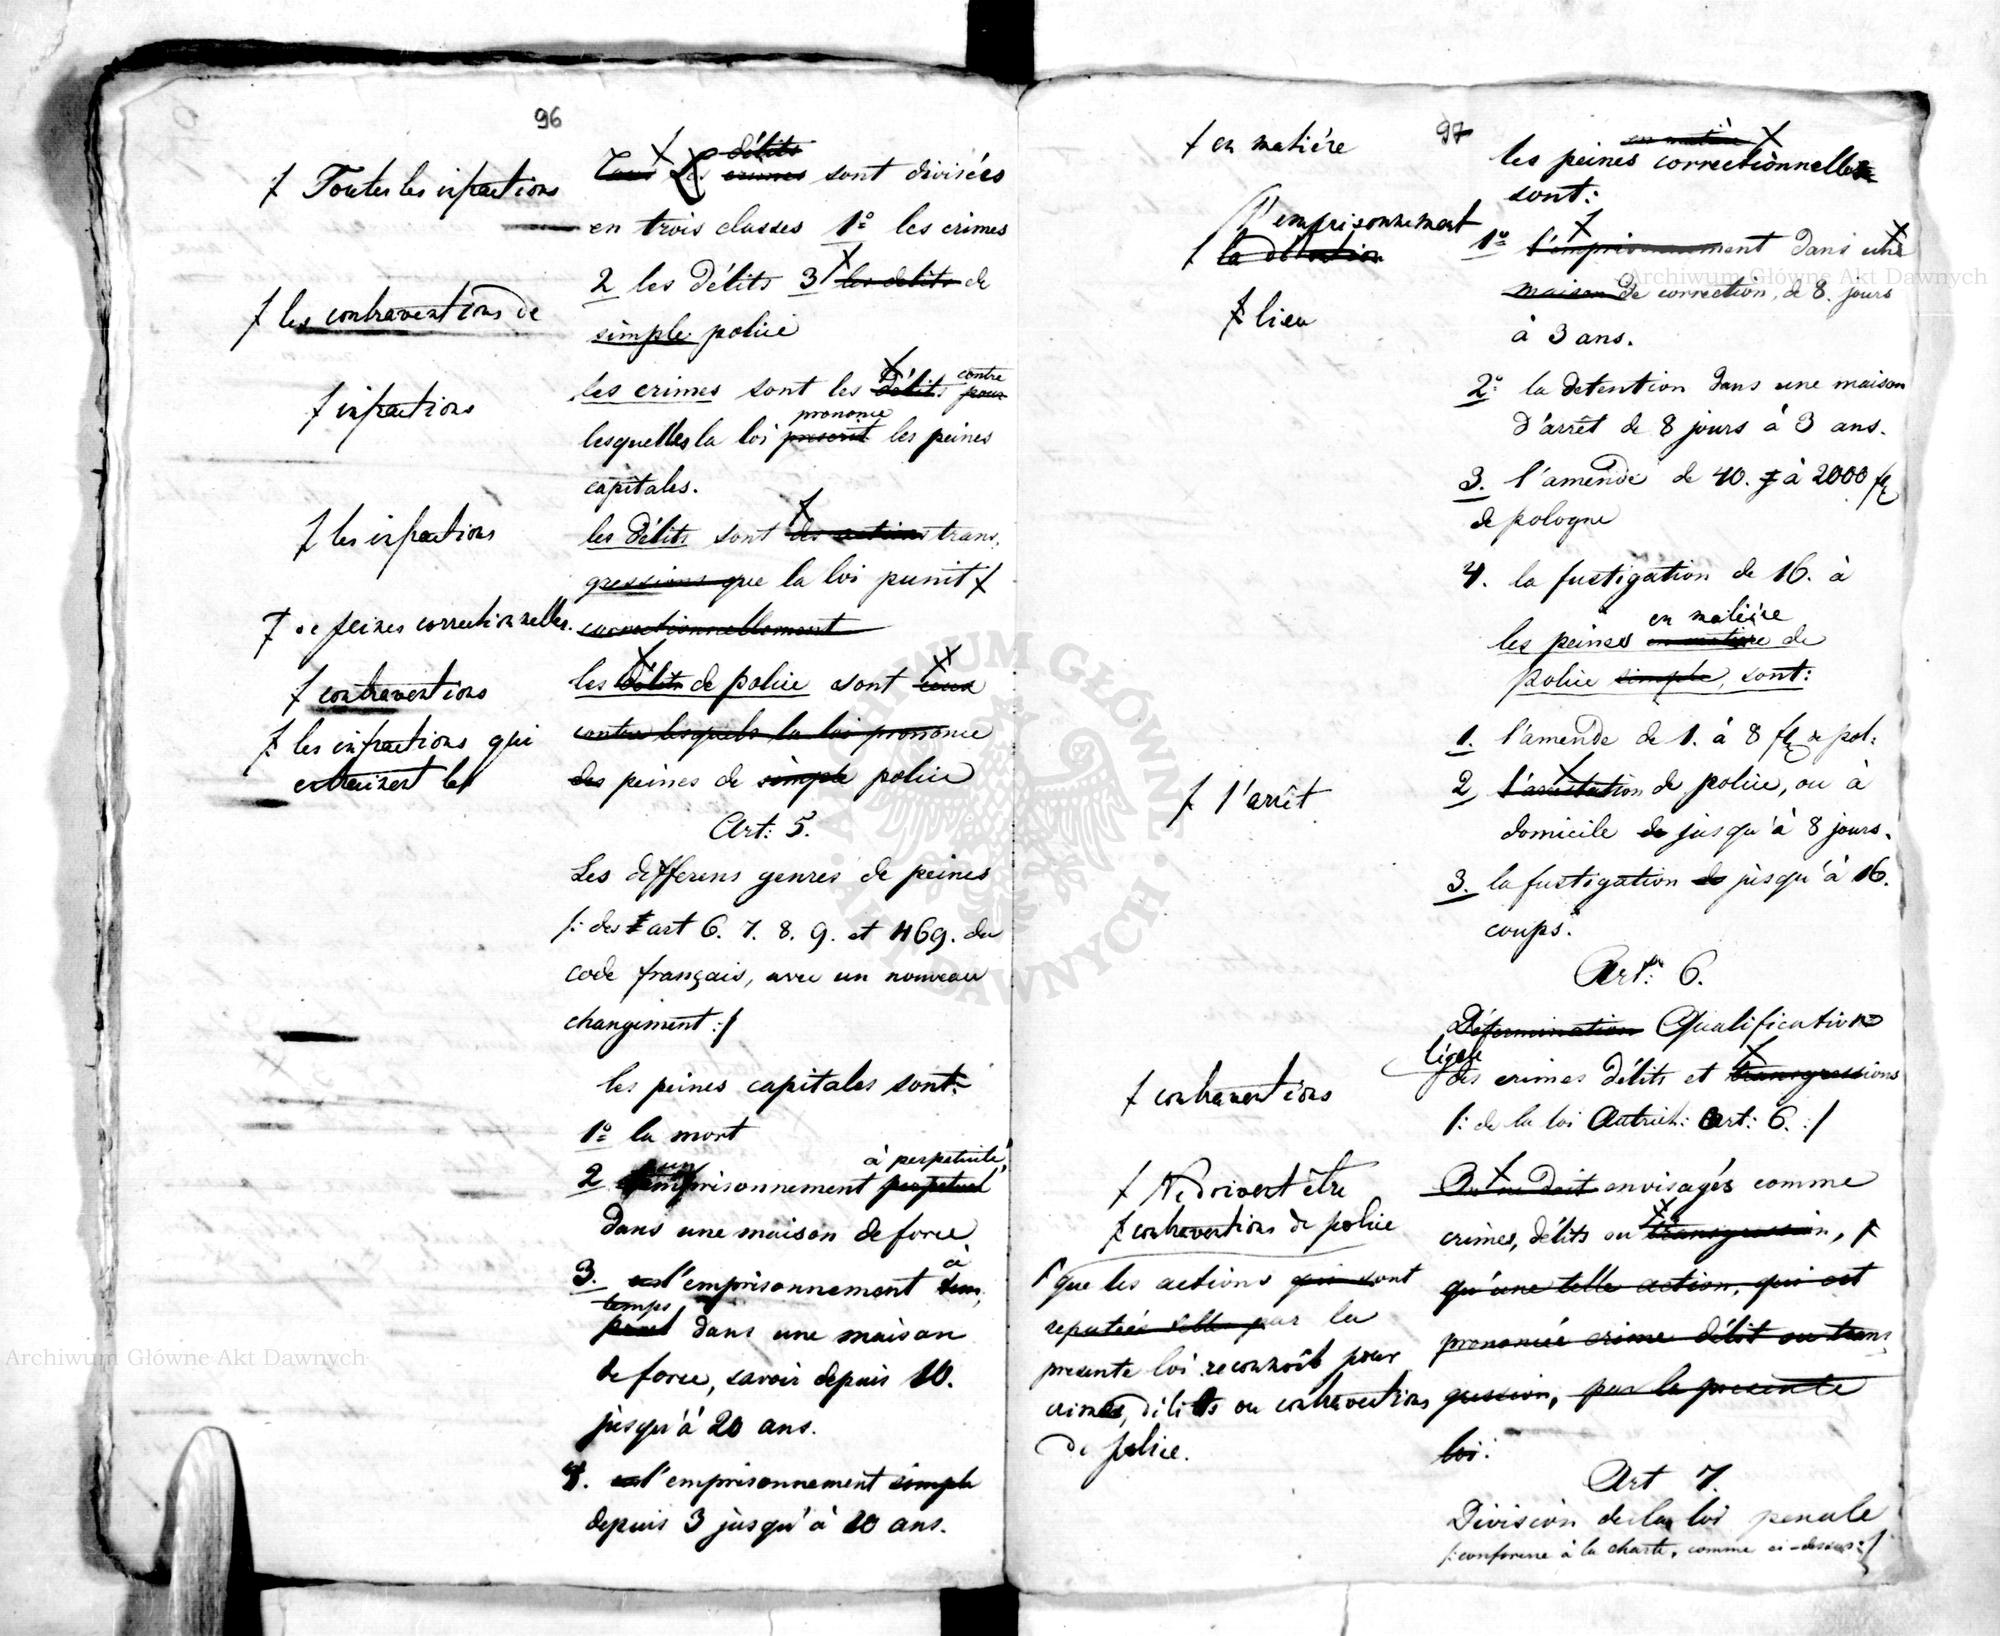 96
Ɨ Toutes les infractions
Ɨ les contraventions de
Ɨ infractions
Ɨ les infractions
Ɨ de peines correctionnelles.
Ɨ contraventions
Ɨ les infractions qui
entrainent les
Tous Les délits crimes sont divisées
en trois classes 1º les crimes
2 les délits 3 les delits de
simple police
les crimes sont les délits contre pour
lesquelles la loi prononce prescrit les peines
capitales.
les délits sont des actions trans,
gressions que la loi punit Ɨ
correctionnellement
les délits de police sont ceux
contre lesquels la loi prononce
des peines de simple police
Art: 5.
Les differens genres de peines
/: des art 6. 7. 8. 9. et 469. du
code français, avec un nouveau
changiment :/
les peines capitales sont:
1º la mort
2 un emprisonnement à perpetuité perpetuel
dans une maison de force
3. l'emprisonnement à tem,
temps porel dans une maison
de force, savoir depuis 10.
jusqu'à 20 ans.
4. l'emprisonnement simple
depuis 3 jusqu'à 10 ans.
97
Ɨ en matière
l'emprisonnement
Ɨ la détention
Ɨ lieu
Ɨ l'arrêt
Ɨ contraventions
Ɨ Ne doivent être
Ɨ contraventions de police
Ɨ que les actions qui sont
reputées telles par la
presente loi reconnoît pour
crimes, délits ou contraventions
de police.
en matière
les peines correctionnelles
sont:
1º l'emprisonnement dans une
maison de correction, de 8. jours
à 3 ans.
2º la detention dans une maison
d'arrêt de 8 jours à 3 ans.
3. l'amende de 40. à 2000 fl
de pologne
4. la fustigation de 16. à
les peines en matière en matière de
police simple, sont:
1. l'amende de 1. à 8 fl de pol:
2 l'arrestation de police, ou à
domicile de jusqu'à 8 jours.
3. la fustigation de jusqu'à 16.
coups.
Art: 6.
Détermination Qualification
légale
des crimes délits et transgressions
/: de la loi Autrich: Art: 6. :/
On ne doit envisagés comme
crimes, délits ou transgression, Ɨ
qu'une telle action, qui est
prononcée crime délit ou trans,
gression, par la presente
loi.
Art 7.
Division de la loi penale
/: conforme à la charte, comme ci-dessus :/
Archiwum Główne Akt Dawnych
Archiwum Główne Akt Dawnych
ARCHIWUM GŁÓWNE AKT DAWNYCH